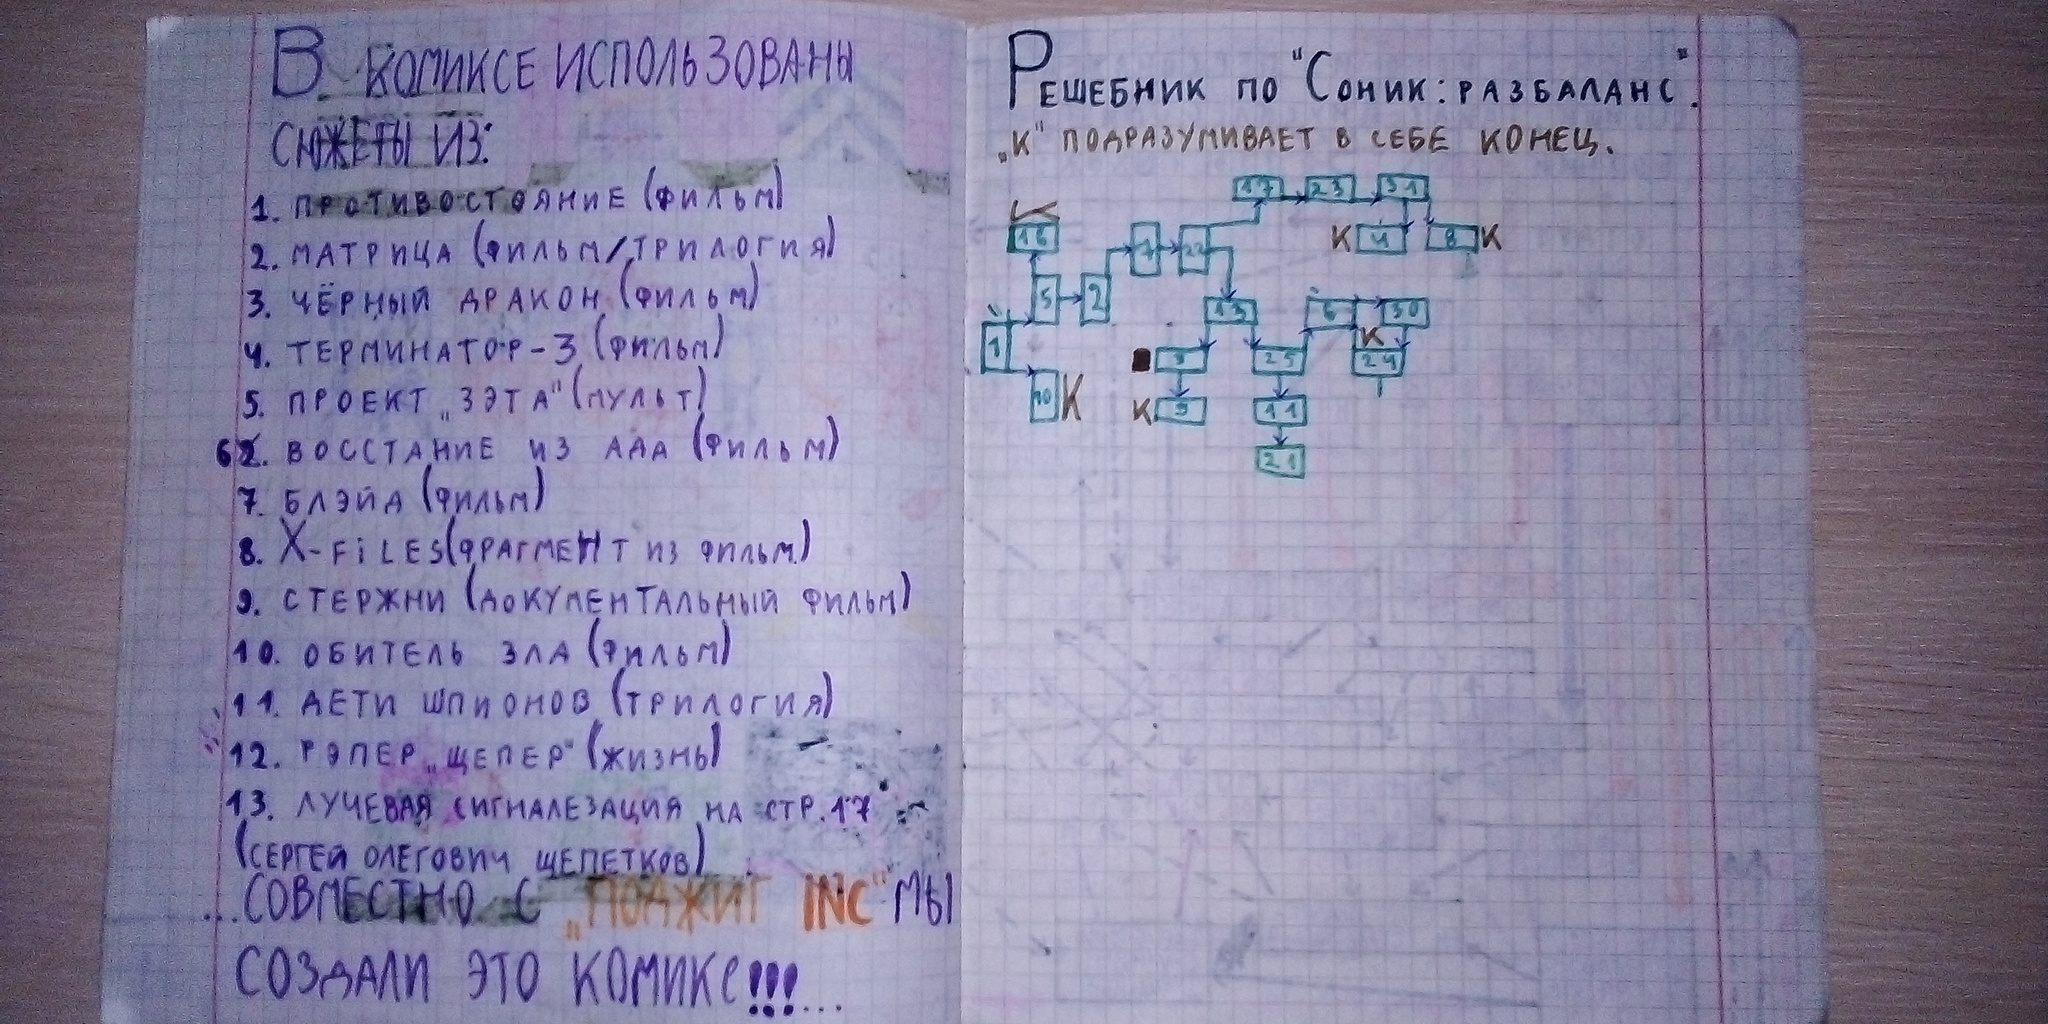 В КОМИКСЕ ИСПОЛЬЗОВАНЫ
СЮЖЕТЫ ИЗ:
1. ПРОТИВОСТОЯНИЕ (ФИЛЬМ)
2. МАТРИЦА (ФИЛЬМ/ТРИЛОГИЯ)
3. ЧЁРНЫЙ ДРАКОН (ФИЛЬМ)
4. ТЕРМИНАТОР-3 (ФИЛЬМ)
5. ПРОЕКТ „ЗЭТА" (МУЛЬТ)
6. ВОССТАНИЕ ИЗ АДА (ФИЛЬМ)
7. БЛЭЙД (ФИЛЬМ)
8. X-FiLES (ФРАГМЕНТ ИЗ ФИЛЬМ.)
9. СТЕРЖНИ (ДОКУМЕНТАЛЬНЫЙ ФИЛЬМ)
10. ОБИТЕЛЬ ЗЛА (ФИЛЬМ)
11. ДЕТИ ШПИОНОВ (ТРИЛОГИЯ)
12. РЭПЕР „ЩЕПЕР" (ЖИЗНЬ)
13. ЛУЧЕВАЯ СИГНАЛЕЗАЦИЯ НА СТР.17
(СЕРГЕЙ ОЛЕГОВИЧ ЩЕПЕТКОВ)
...СОВМЕСТНО С „ПОДЖИГ INC" МЫ
СОЗДАЛИ ЭТО КОМИКС!!!...
РЕШЕБНИК ПО "СОНИК: РАЗБАЛАНС".
„К" ПОДРАЗУМИВАЕТ В СЕБЕ КОНЕЦ.
17 23 31
К 16 22 К 4 8 К
5 2
13 6 30
1 25 К 24
10 К К 9 11
21